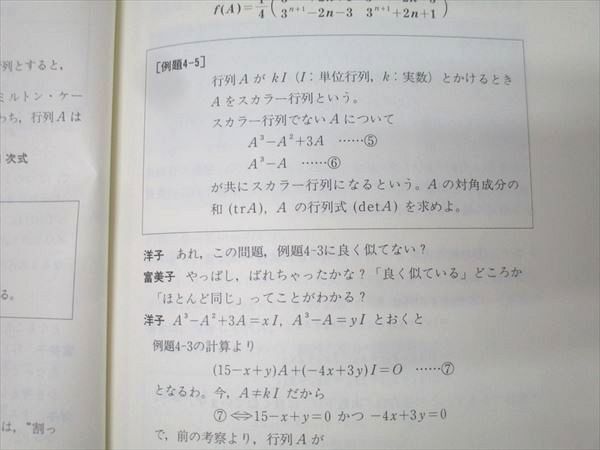 f(A)=1/4(3ⁿ⁺¹−2n−3 3ⁿ⁺¹+2n+1)
[例題4-5]
行列 A が kI (I：単位行列, k：実数) とかけるとき
A をスカラー行列という。
スカラー行列でない A について
A³−A²+3A ……⑤
A³−A ……⑥
が共にスカラー行列になるという。A の対角成分の
和 (trA), A の行列式 (detA) を求めよ。
洋子 あれ, この問題, 例題4-3に良く似てない？
富美子 やっぱし, ばれちゃったかな？「良く似ている」どころか
「ほとんど同じ」ってことがわかる？
洋子 A³−A²+3A=xI, A³−A=yI とおくと
例題4-3の計算より
(15−x+y)A+(−4x+3y)I=O ……⑦
となるわ。今, A≠kI だから
⑦⇔15−x+y=0 かつ −4x+3y=0
で, 前の考察より, 行列 A が
列とすると,
ミルトン・ケー
わち, 行列 A は
次式
る。
は, "割っ